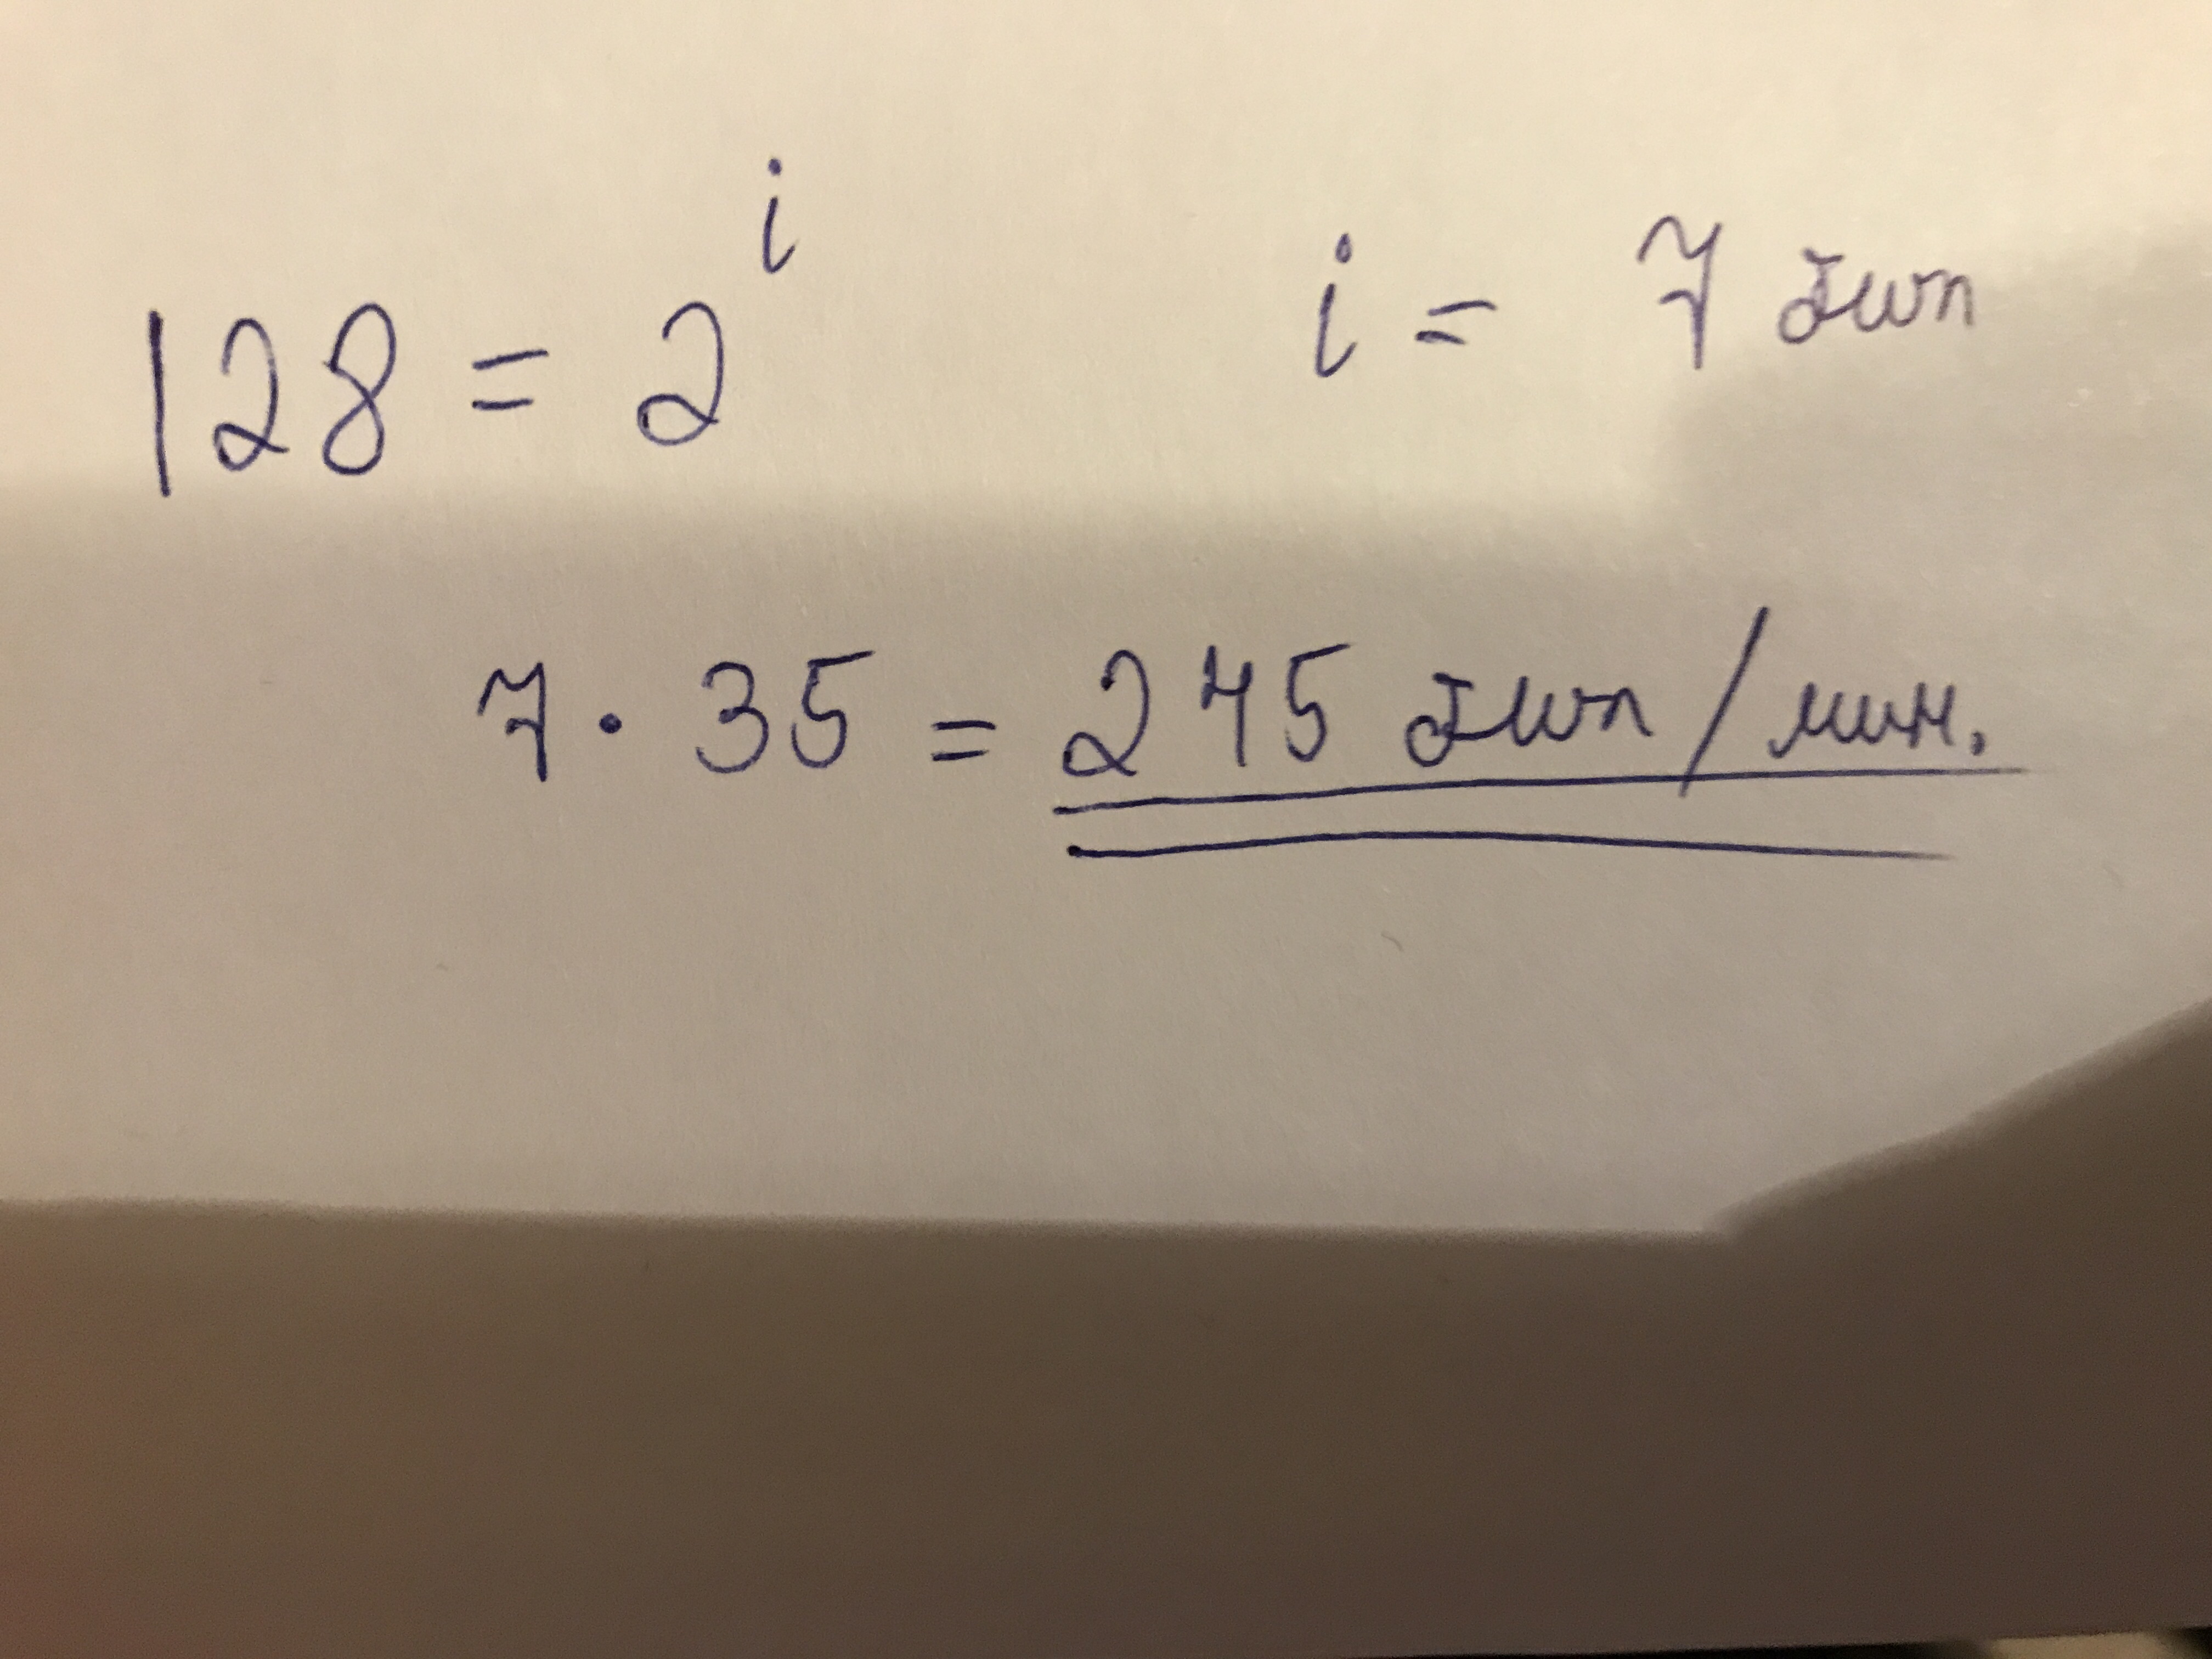 128 = 2^i i = 7 бит
7 · 35 = 245 бит/мин.